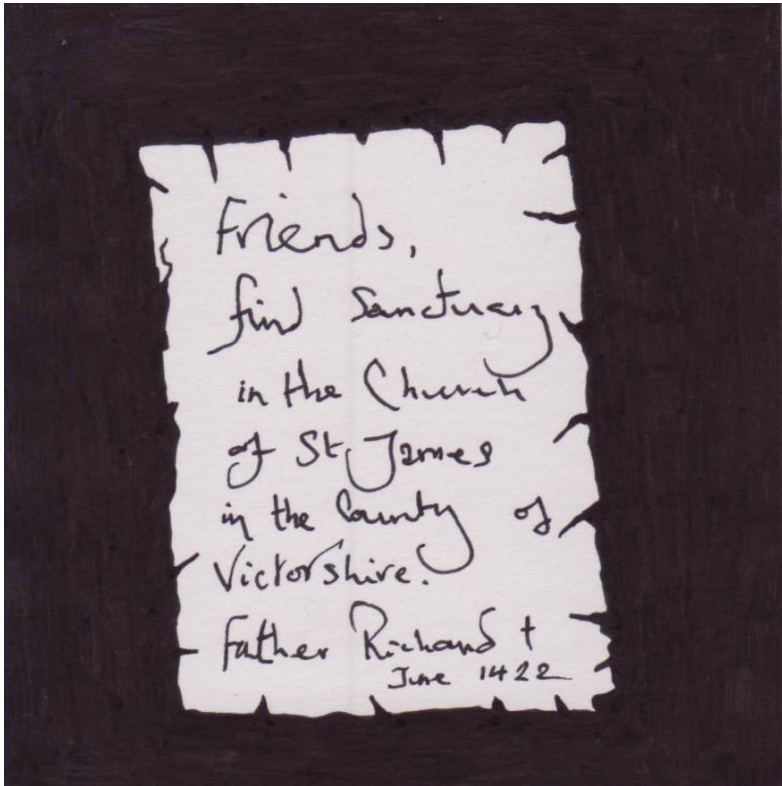 Friends,
find Sanctuary
in the Church
of St James
in the County of
Victorshire.
Father Richard †
June 1422